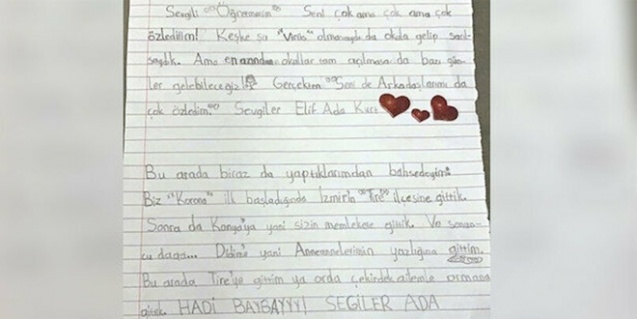 Sevgili Öğretmenim Seni çok ama çok ama çok
özledim! Keşke şu "Virüs" olmasaydı da okula gelip
Ama en azından okullar tam açılmasa da bazı gün-
ler gelebileceğiz! Gerçekten Seni de Arkadaşlarımı da
çok özledim. Sevgiler Elif Ada Kurt
Bu arada biraz da yaptıklarımdan bahsedeyim:
Biz "Korona" ilk başladığında İzmir'in "Tire" ilçesine gittik.
Sonra da Konya'ya yani sizin memlekete gittik. Ve sonun-
cu daaa... Didim'e yani Anneannelerimin yazlığına gittim.
Bu arada Tire'ye gittim ya orda çekirdek ailemle ormana
gittik. HADİ BAYBAYYY! SEGİLER ADA